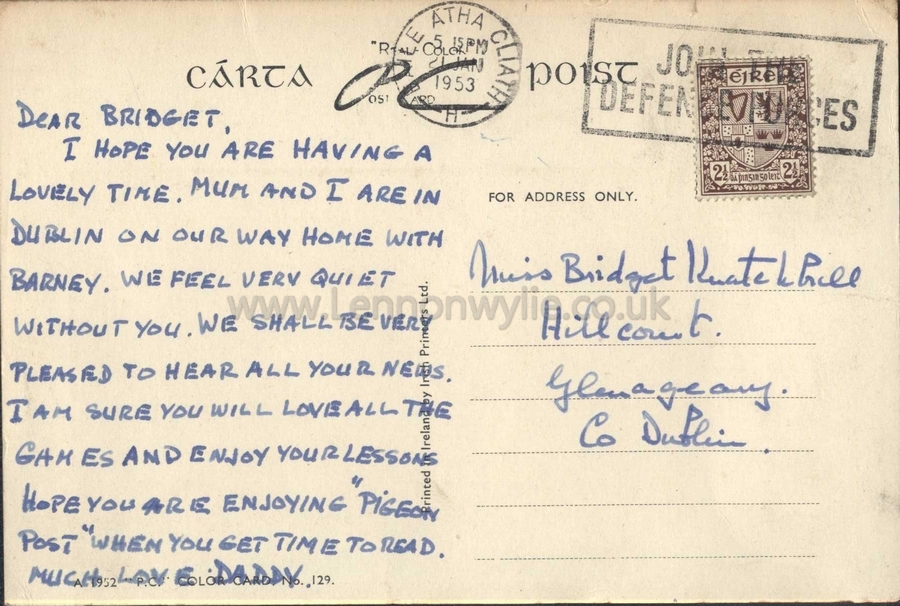 CÁRTA
"REAL COLOR"
PC
POST CARD
POIST
BAILE ÁTHA CLIATH
5 15PM
21 JAN
1953
H
JOIN THE
DEFENCE FORCES
ÉIRE
2½ 2½
DEAR BRIDGET,
I HOPE YOU ARE HAVING A
LOVELY TIME. MUM AND I ARE IN
DUBLIN ON OUR WAY HOME WITH
BARNEY. WE FEEL VERY QUIET
WITHOUT YOU. WE SHALL BE VERY
PLEASED TO HEAR ALL YOUR NEWS.
I AM SURE YOU WILL LOVE ALL THE
GAMES AND ENJOY YOUR LESSONS
HOPE YOU ARE ENJOYING "PIGEON
POST" WHEN YOU GET TIME TO READ.
MUCH LOVE. DADDY.
A. 1952 "P.C." COLOR CARD, No. 129.
Printed in Ireland by Irish Printers Ltd.
FOR ADDRESS ONLY.
Miss Bridget Knatchbull
Hillcourt.
Glenageary.
Co Dublin.
www.Lennonwylie.co.uk